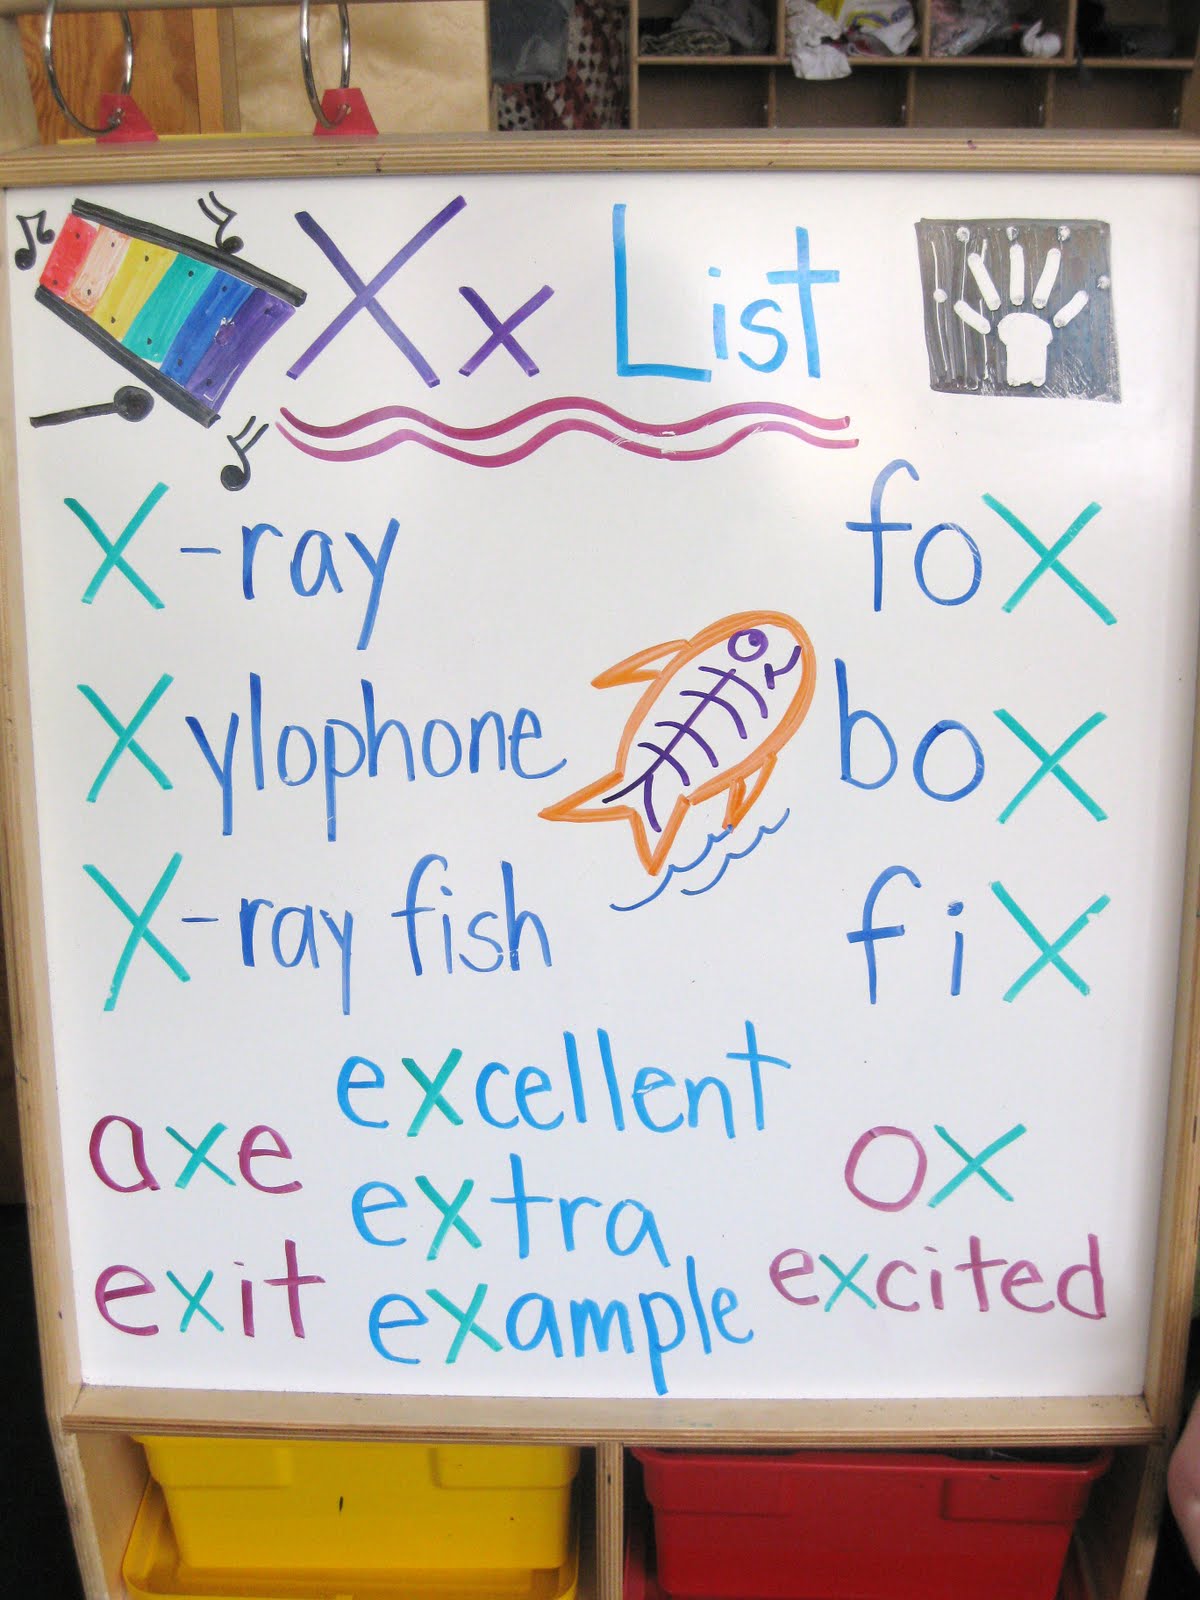 Xx List
X-ray
Xylophone
X-ray fish
fox
box
fix
excellent
extra
example
axe
exit
ox
excited